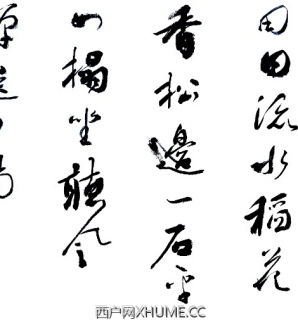 田田流水稻花
香松邊一石平
如榻坐聽風
西户网XHUME.CC